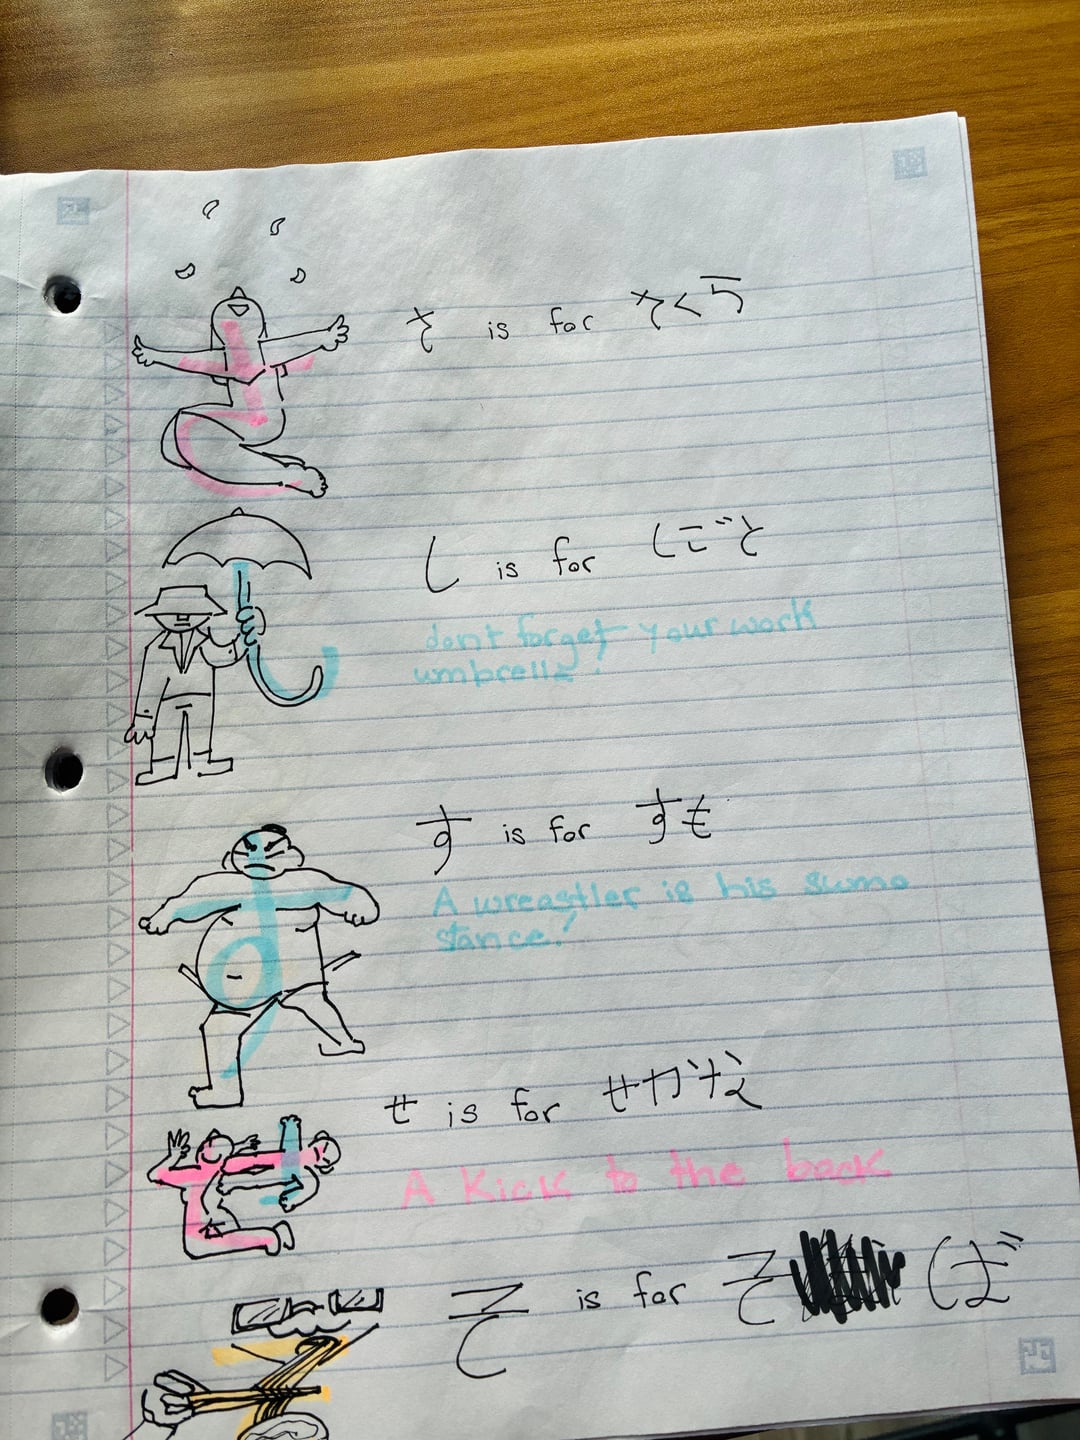 さ is for さくら
し is for しごと
dont forget your work
umbrella!
す is for すも
A wreastler is his sumo
stance!
せ is for せかﾞな
A kick to the back
そ is for そ ば